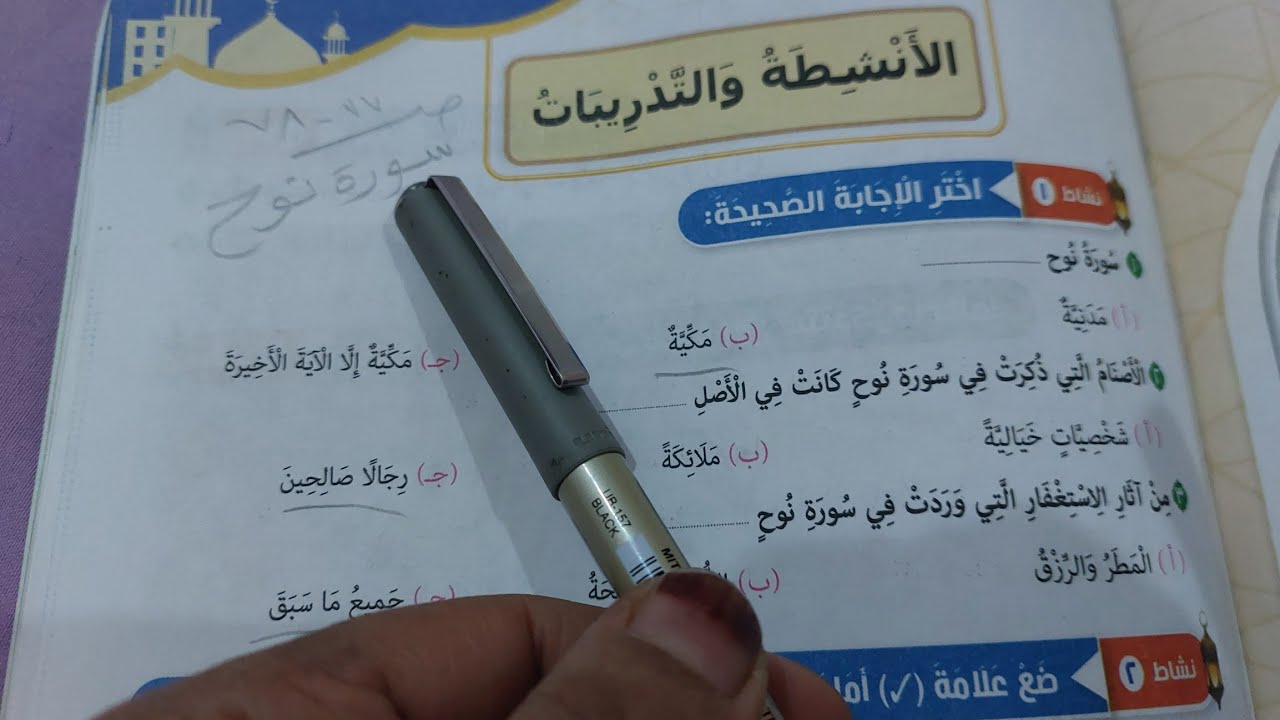 الأَنْشِطَةُ وَالتَّدْرِيبَاتُ
صـ ٧٧ - ٧٨
سورة نوح
نشاط ١ اخْتَرِ الْإِجَابَةَ الصَّحِيحَةَ:
١ سُورَةُ نُوح ..........
(أ) مَدَنِيَّةٌ (ب) مَكِّيَّةٌ (جـ) مَكِّيَّةٌ إِلَّا الْآيَةَ الْأَخِيرَةَ
٢ الْأَصْنَامُ الَّتِي ذُكِرَتْ فِي سُورَةِ نُوحٍ كَانَتْ فِي الْأَصْلِ ..........
(أ) شَخْصِيَّاتٍ خَيَالِيَّةً (ب) مَلَائِكَةً (جـ) رِجَالًا صَالِحِينَ
٣ مِنْ آثَارِ الِاسْتِغْفَارِ الَّتِي وَرَدَتْ فِي سُورَةِ نُوحٍ ..........
(أ) الْمَطَرُ وَالرِّزْقُ (ب) (جـ) جَمِيعُ مَا سَبَقَ
نشاط ٢ ضَعْ عَلَامَةَ (✓)
UB-157
BLACK